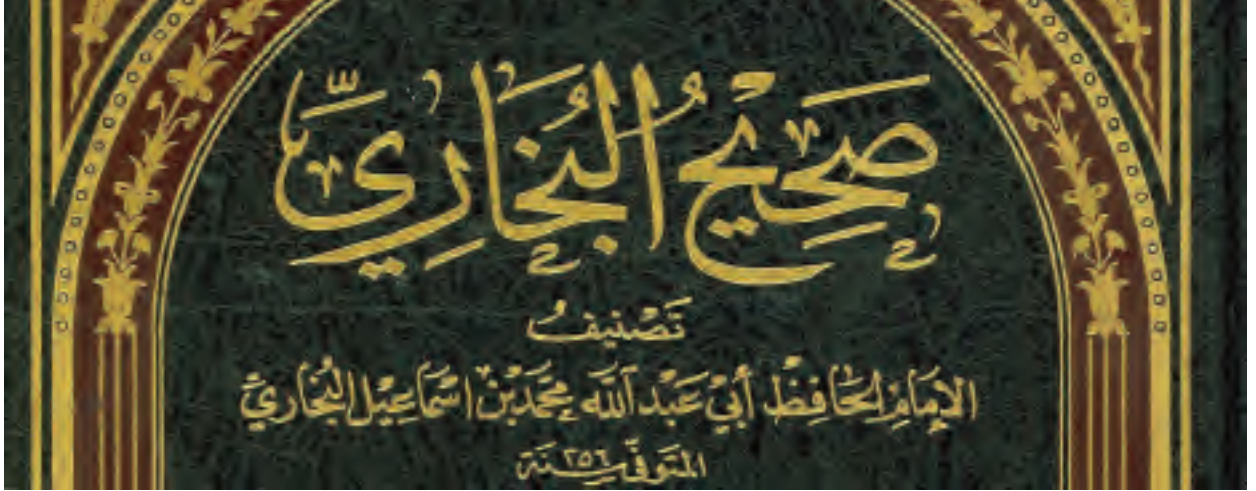 صَحِيحُ البُخَارِيّ
تَصْنِيفُ
الإِمَامِ الحَافِظِ أَبِي عَبْدِ اللَّه مُحَمَّد بْن اسْمَاعِيل البُخَارِيّ
المتَوفّى سَنَة ٢٥٦